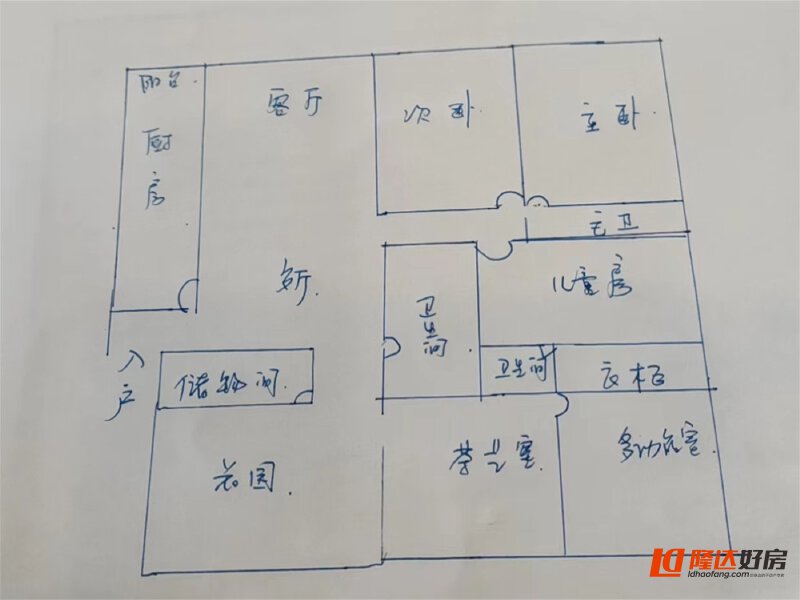 阳台
客厅
次卧
主卧
厨房
主卫
儿童房
卫生间
入户
储物间
卫生间
衣柜
花园
多功能室
隆达好房
ldhaofang.com